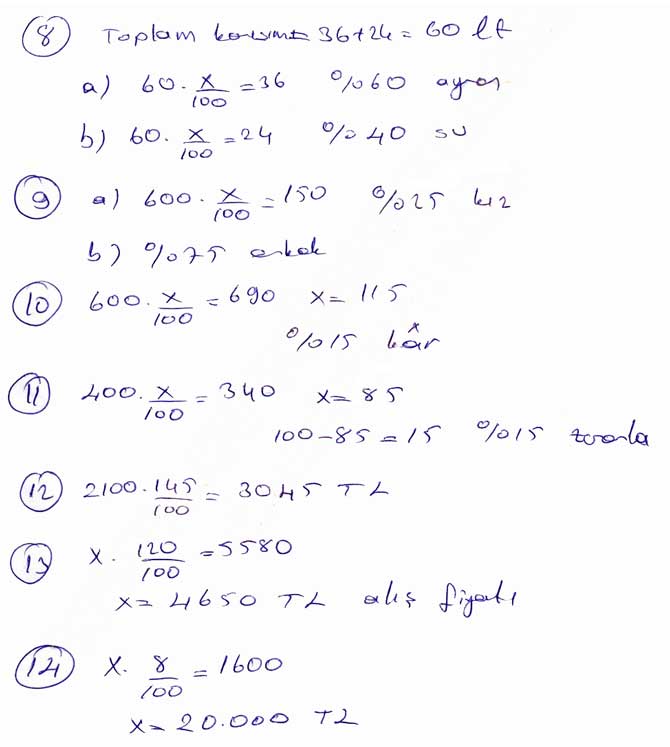 8 Toplam karışım = 36+24 = 60 lt
a) 60 . x/100 = 36 %60 ayran
b) 60 . x/100 = 24 %40 su
9 a) 600 . x/100 = 150 %25 kız
b) %75 erkek
10 600 . x/100 = 690 x = 115
%15 kâr
11 400 . x/100 = 340 x = 85
100-85 = 15 %15 zararla
12 2100 . 145/100 = 3045 TL
13 x . 120/100 = 5580
x = 4650 TL alış fiyatı
14 x . 8/100 = 1600
x = 20.000 TL